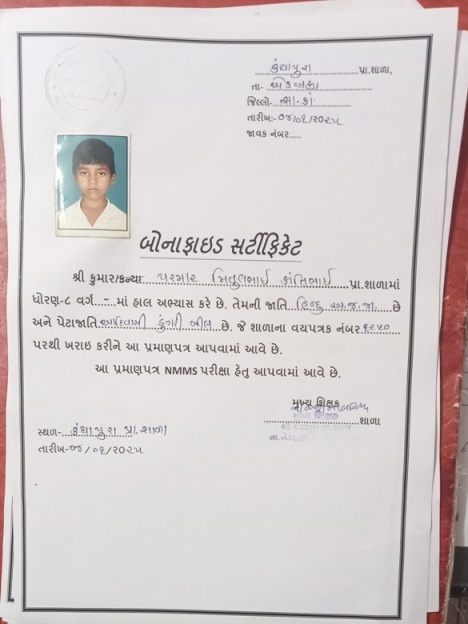 કંથાપુરા પ્રા.શાળા,
તા-
જિલ્લો- સા.કાં
તારીખ:-
જાવક નંબર.....
બોનાફાઇડ સર્ટીફિકેટ
શ્રી કુમાર/કન્યા પરમાર મિતુલભાઈ કાંતિભાઈ પ્રા.શાળામાં
ધોરણ-૮ વર્ગ - માં હાલ અભ્યાસ કરે છે. તેમની જાતિ હિન્દુ અ.જ.જા. છે
અને પેટાજાતિ આદિવાસી ડુંગરી ભીલ છે. જે શાળાના વયપત્રક નંબર ૬૨૫૦
પરથી ખરાઇ કરીને આ પ્રમાણપત્ર આપવામાં આવે છે.
આ પ્રમાણપત્ર NMMS પરીક્ષા હેતુ આપવામાં આવે છે.
મુખ્ય શિક્ષક
શાળા
સ્થળ- કંથાપુરા પ્રા.શાળા
તારીખ-